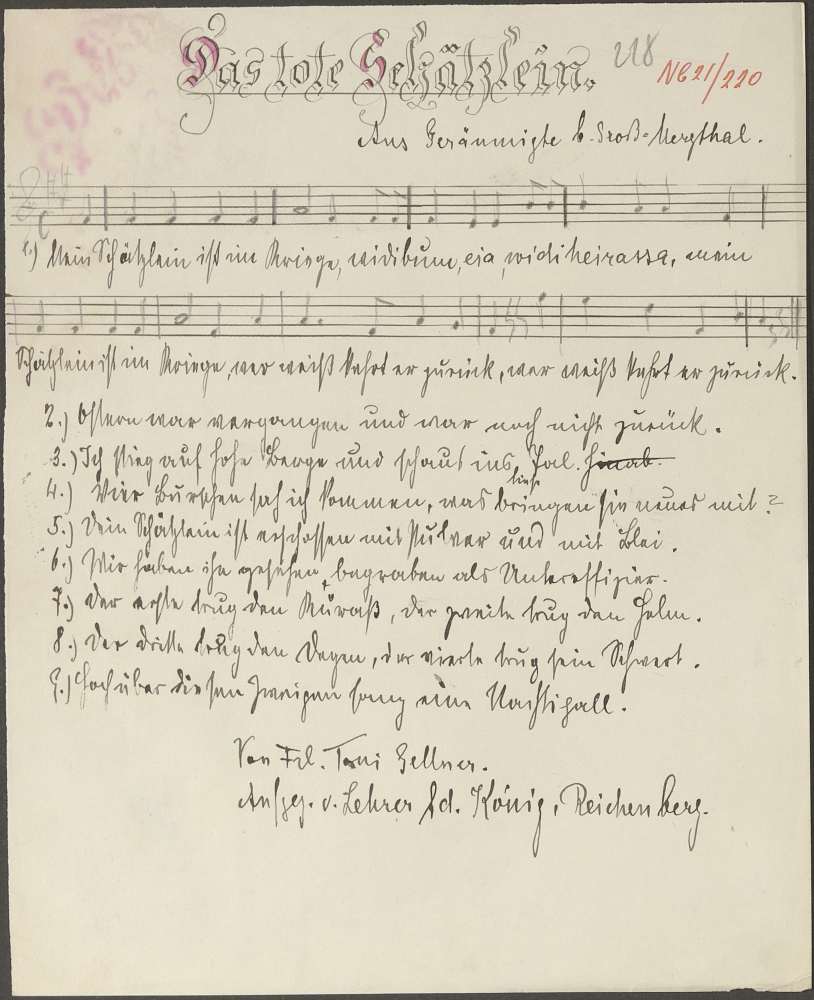 Das tote Schätzlein. 218
NB21/220
Aus Geräumigte b. Groß-Mergthal.
1.) Mein Schätzlein ist im Kriege, widibum, eia, widiheirassa, mein
Schätzlein ist im Kriege, wer weiß kehrt er zurück, wer weiß kehrt er zurück.
2.) Ostern war vergangen und war noch nicht zurück.
3.) Ich stieg auf hohe Berge und schaut ins tiefe Tal. hinab.
4.) Vier Burschen sah ich kommen, was bringen sie neues mit?
5.) Dein Schätzlein ist erschossen mit Pulver und mit Blei.
6.) Wir haben ihn gesehen, begraben als Unteroffizier.
7.) Der erste trug den Küraß, der zweite trug den Helm.
8.) Der dritte trug den Degen, der vierte trug sein Schwert.
9.) Hoch über diesen Zweigen sang eine Nachtigall.
Von Frl. Toni Gellner.
Aufgez. v. Lehrer Ed. König, Reichenberg.